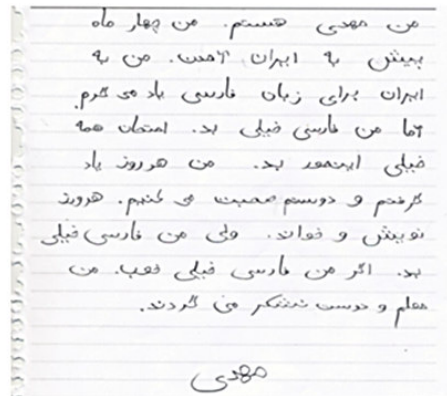 من مهدی هستم. من چهار ماه
پیش به ایران آمدن. من به
ایران برای زبان فارسی یاد می گرم
اما من فارسی خیلی بد. امتحان همه
خیلی اینمور بد. من هر روز یاد
گرفتم و دوستم صحبت می کنیم. هرروز
نوییش و خواند. ولی من فارسی خیلی
بد. اگر من فارسی خیلی خوب. من
معلم و دوست تشکر می گردند.
مهدی